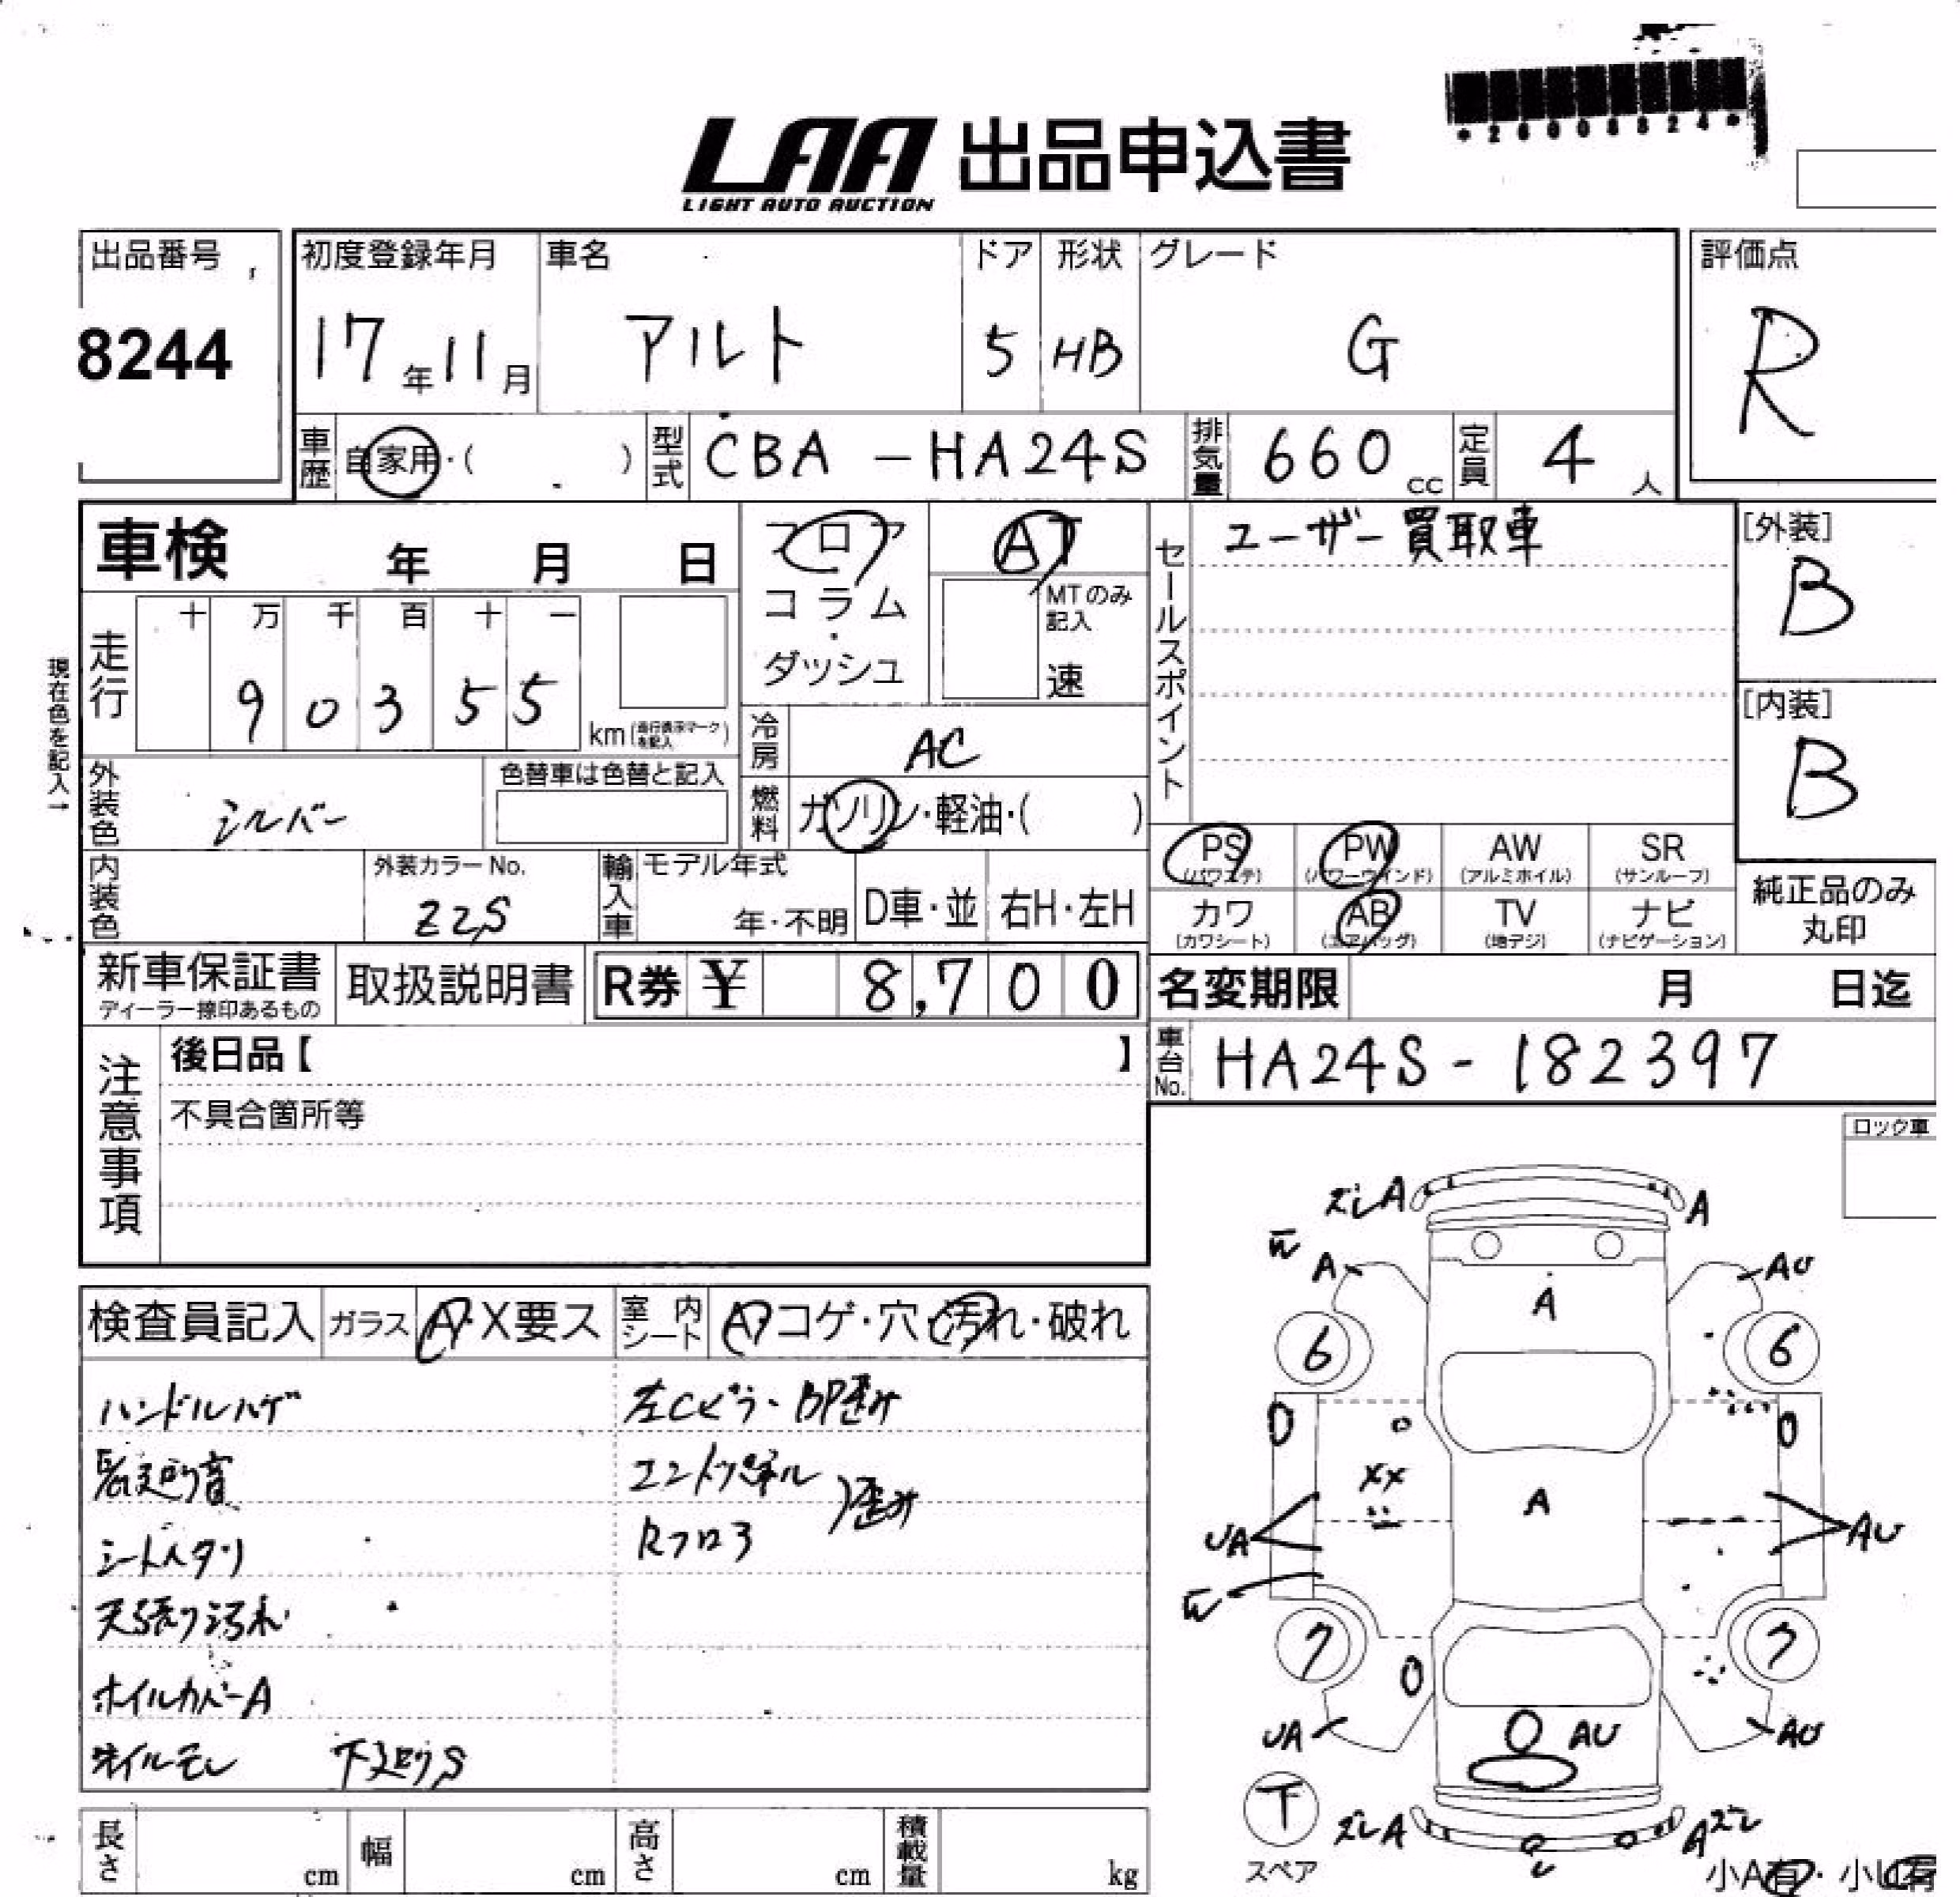 *26008824*
LAA 出品申込書
LIGHT AUTO AUCTION
出品番号
8244
初度登録年月
17年11月
車名
アルト
ドア
5
形状
HB
グレード
G
評価点
R
車歴 自家用・( )
型式 CBA-HA24S
排気量 660 cc
定員 4 人
車検 年 月 日
フロア
コラム
・
ダッシュ
AT
MTのみ
記入
速
セールスポイント
ユーザー買取車
[外装]
B
[内装]
B
現在色を記入→
走行
十 万 千 百 十 一
9 0 3 5 5
km(走行表示マークを記入)
冷房 AC
外装色 シルバー
色替車は色替と記入
燃料 ガソリン・軽油・( )
PS
(パワステ)
PW
(パワーウインド)
AW
(アルミホイル)
SR
(サンルーフ)
カワ
(カワシート)
AB
(エアバッグ)
TV
(地デジ)
ナビ
(ナビゲーション)
純正品のみ
丸印
内装色
外装カラーNo.
Z2S
輸入車
モデル年式
年・不明
D車・並
右H・左H
新車保証書
ディーラー捺印あるもの
取扱説明書
R券 ¥ 8,700
名変期限 月 日迄
車台No. HA24S-182397
注意事項
後日品【 】
不具合箇所等
ロック車
検査員記入
ガラス A・X要ス
室内シート A・コゲ・穴・汚れ・破れ
ハンドルハゲ
シートヘタリ
天張り汚れ
ホイルカバーA
オイルモレ 下廻りS
Rフロア
歪み
ズレA
A
W
A
AU
A
6
6
XX
A
UA
AU
W
7
7
UA
AU
AU
下
スペア
ズレA
Aズレ
小A有・小U有
長さ cm
幅 cm
高さ cm
積載量 kg